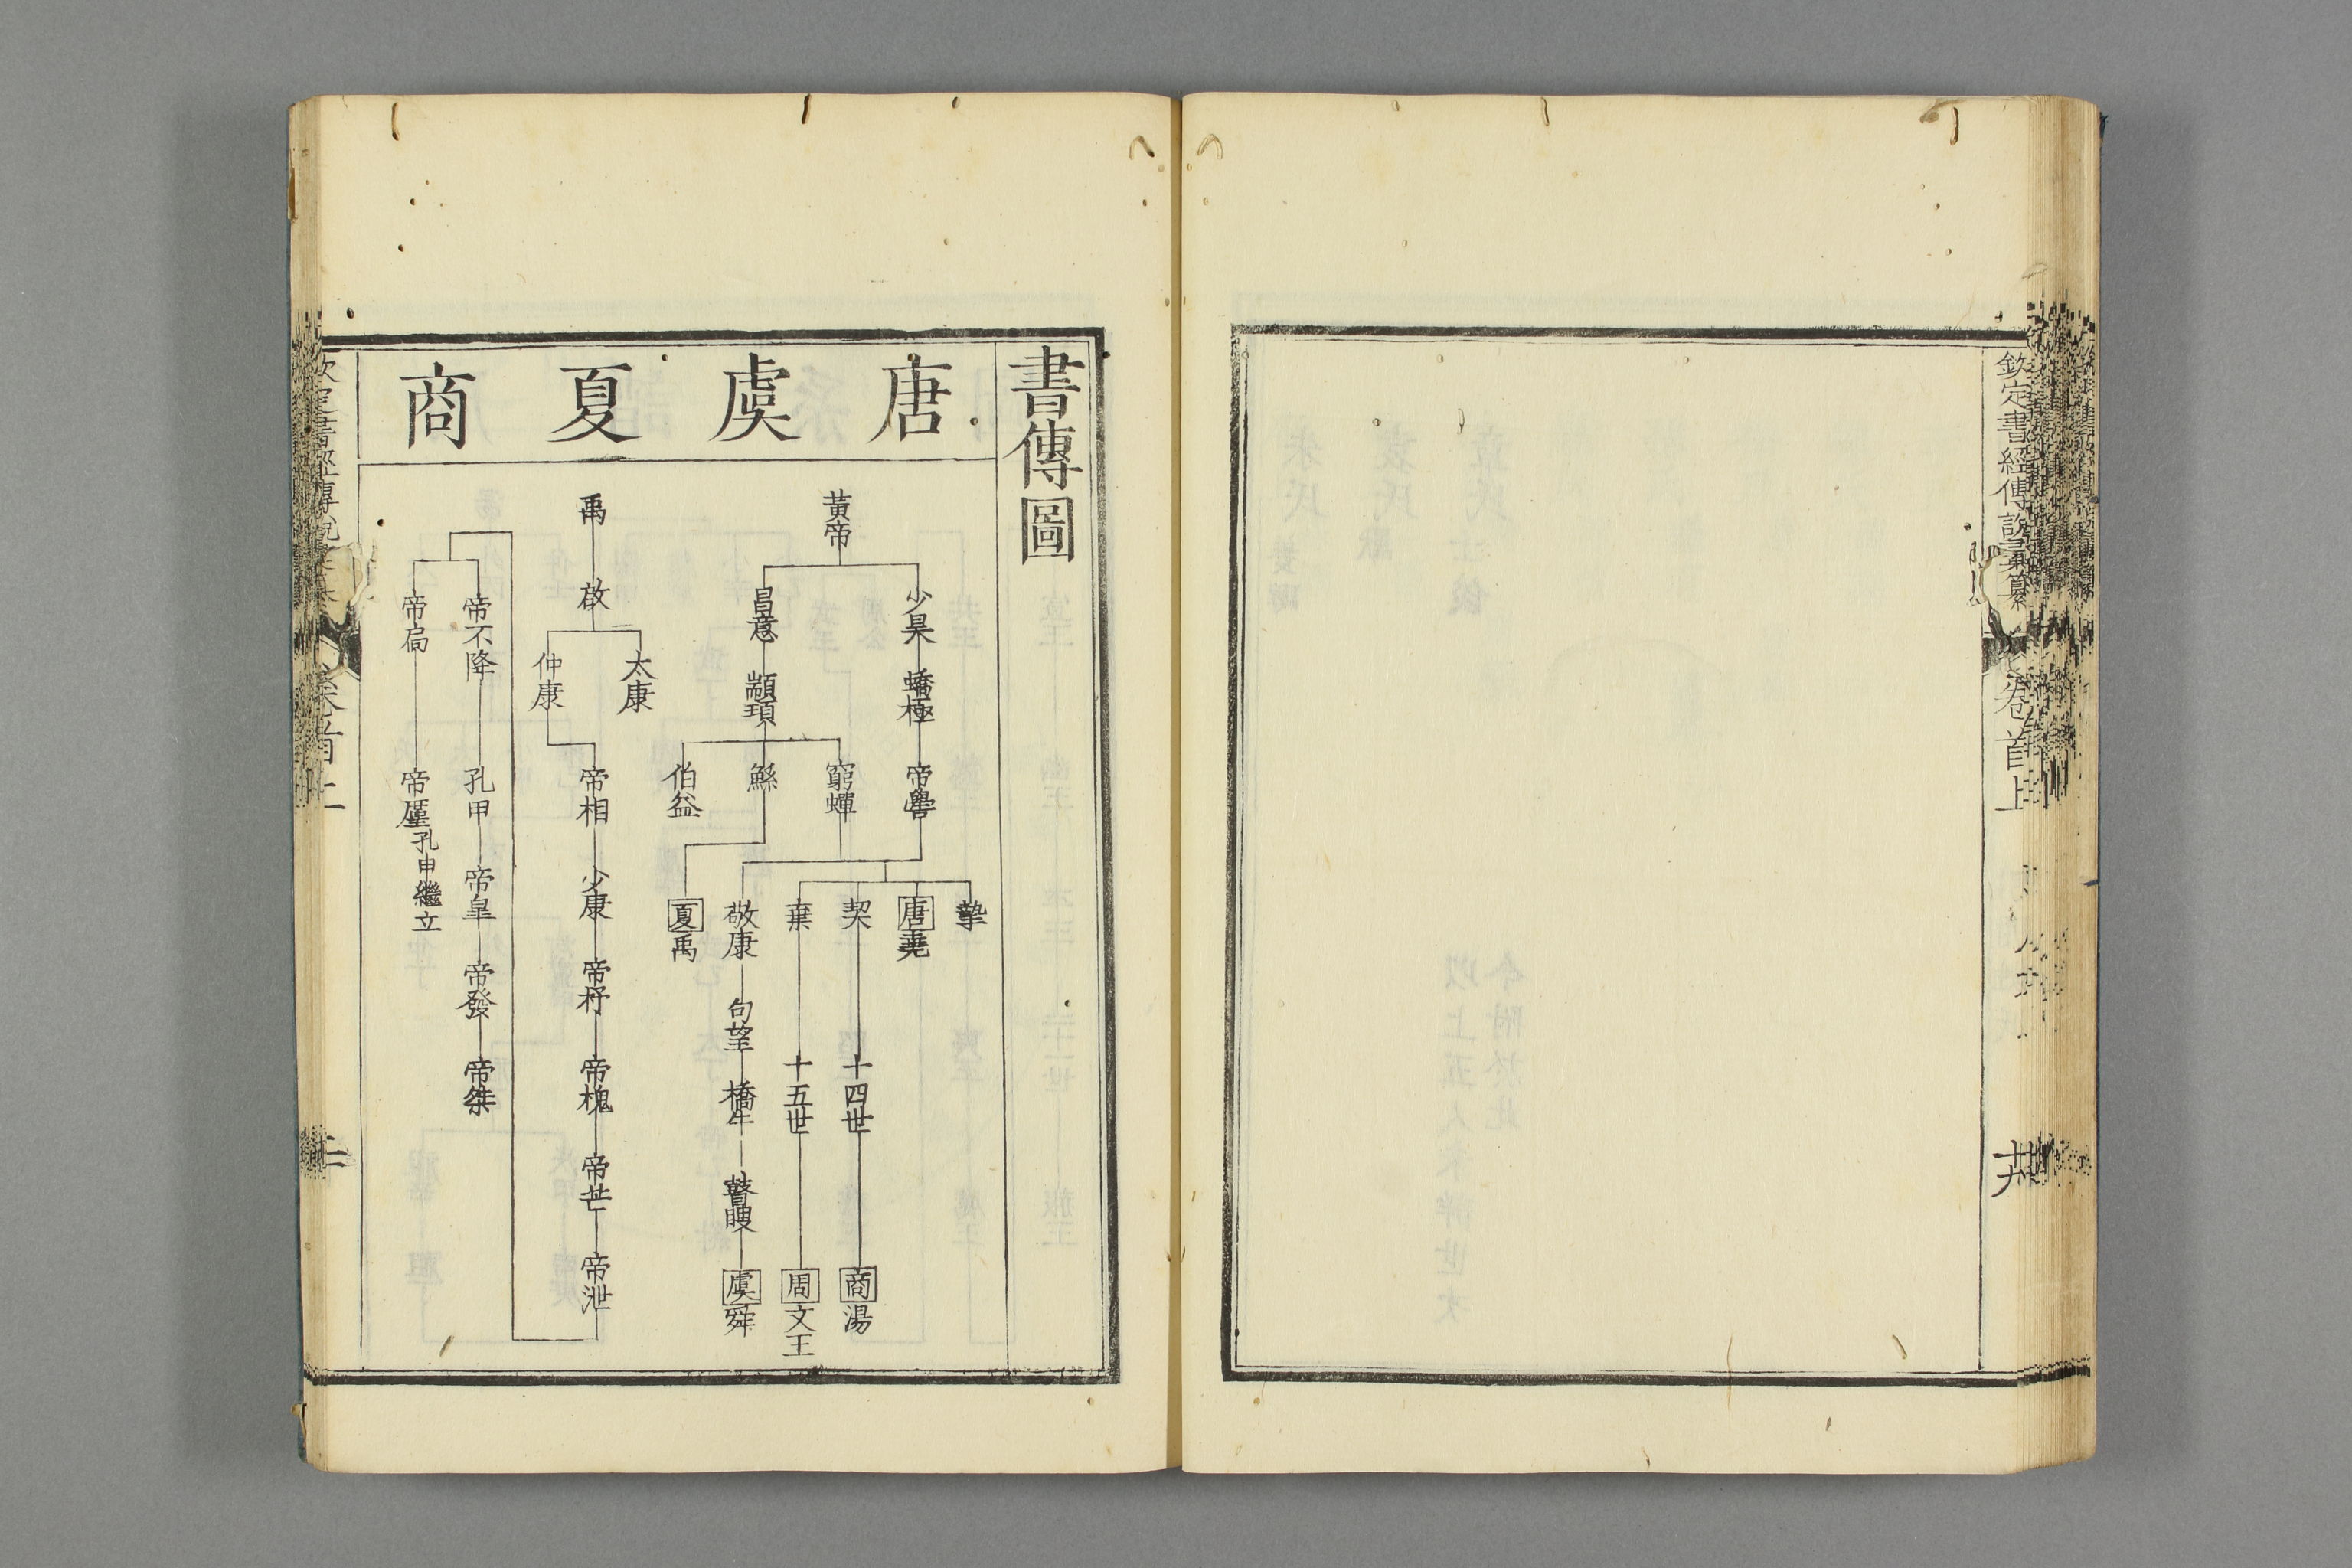 欽定書經傳說彙纂
卷首上
書傳圖
唐虞夏商
黃帝
少昊
蟜極
帝嚳
摯
唐堯
契
十四世
商湯
棄
十五世
周文王
昌意
顓頊
窮蟬
敬康
句望
橋牛
瞽瞍
虞舜
鯀
夏禹
伯益
禹
啟
太康
仲康
帝相
少康
帝杼
帝槐
帝芒
帝泄
帝不降
孔甲
帝皐
帝發
帝桀
帝扃
帝厪孔甲繼立